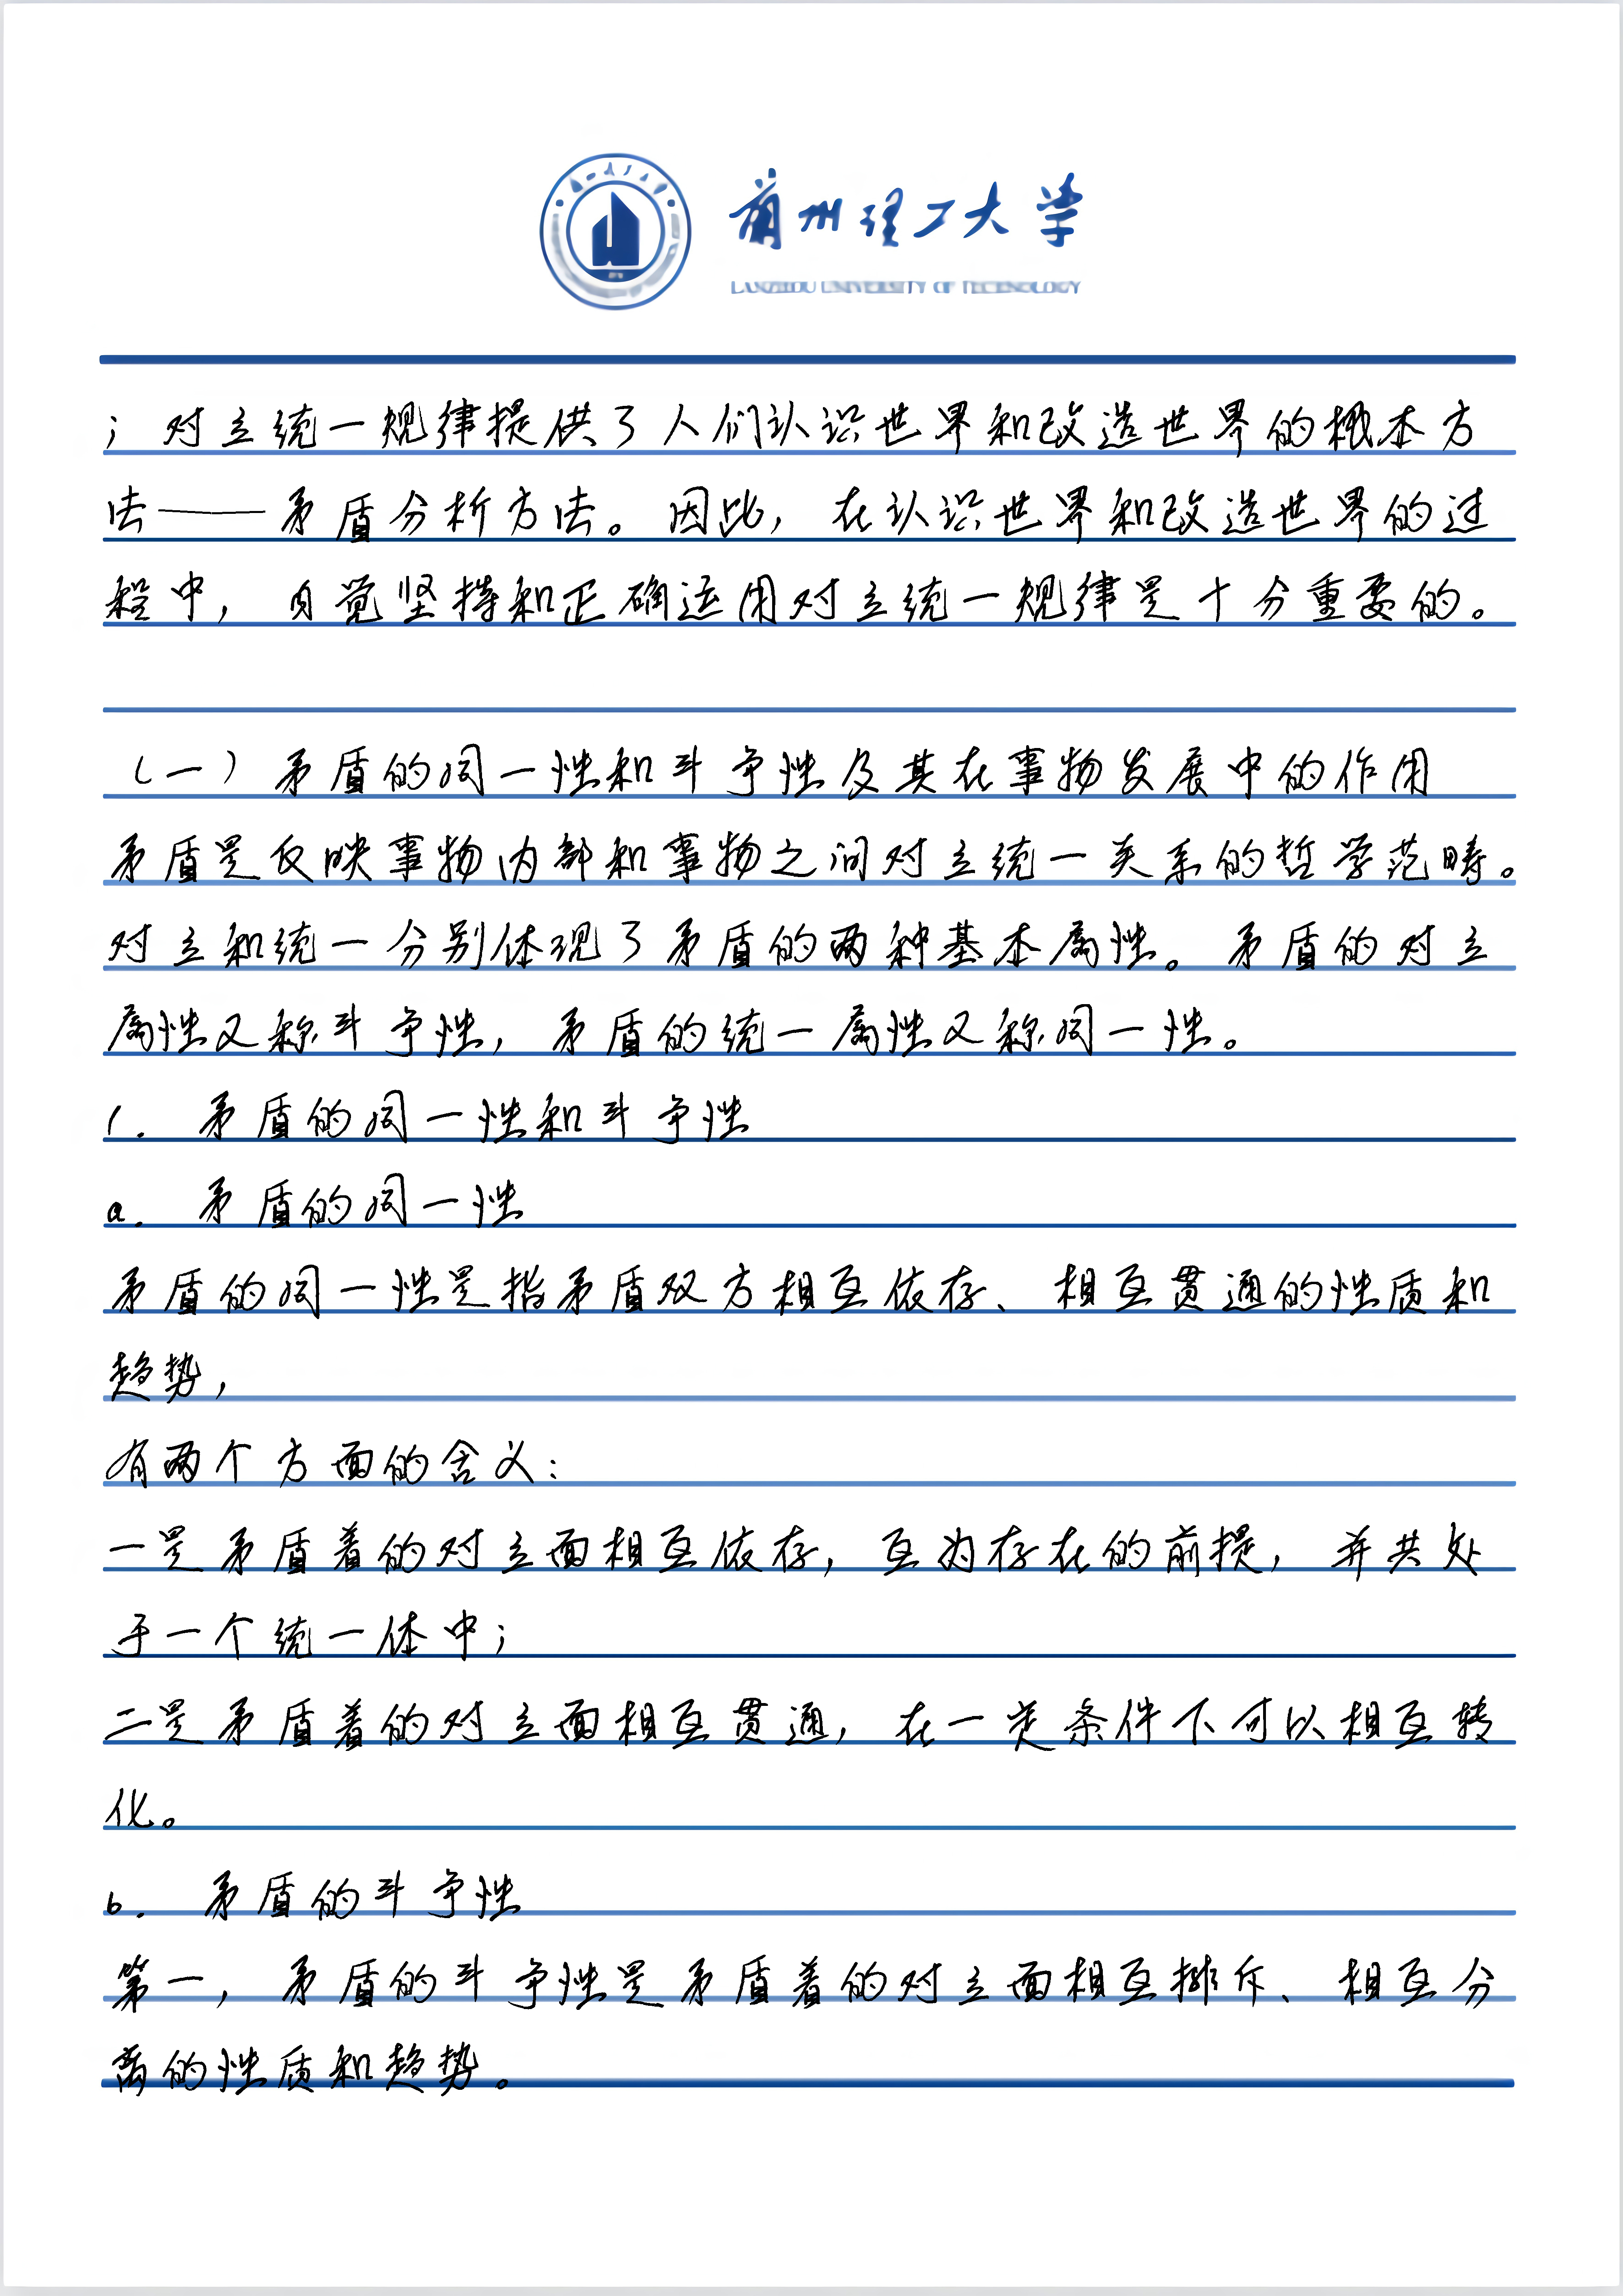 兰州理工大学
LANZHOU UNIVERSITY OF TECHNOLOGY
；对立统一规律提供了人们认识世界和改造世界的根本方
法——矛盾分析方法。因此，在认识世界和改造世界的过
程中，自觉坚持和正确运用对立统一规律是十分重要的。
（一）矛盾的同一性和斗争性及其在事物发展中的作用
矛盾是反映事物内部和事物之间对立统一关系的哲学范畴。
对立和统一分别体现了矛盾的两种基本属性。矛盾的对立
属性又称斗争性，矛盾的统一属性又称同一性。
1. 矛盾的同一性和斗争性
a. 矛盾的同一性
矛盾的同一性是指矛盾双方相互依存、相互贯通的性质和
趋势，
有两个方面的含义：
一是矛盾着的对立面相互依存，互为存在的前提，并共处
于一个统一体中；
二是矛盾着的对立面相互贯通，在一定条件下可以相互转
化。
b. 矛盾的斗争性
第一，矛盾的斗争性是矛盾着的对立面相互排斥、相互分
离的性质和趋势。